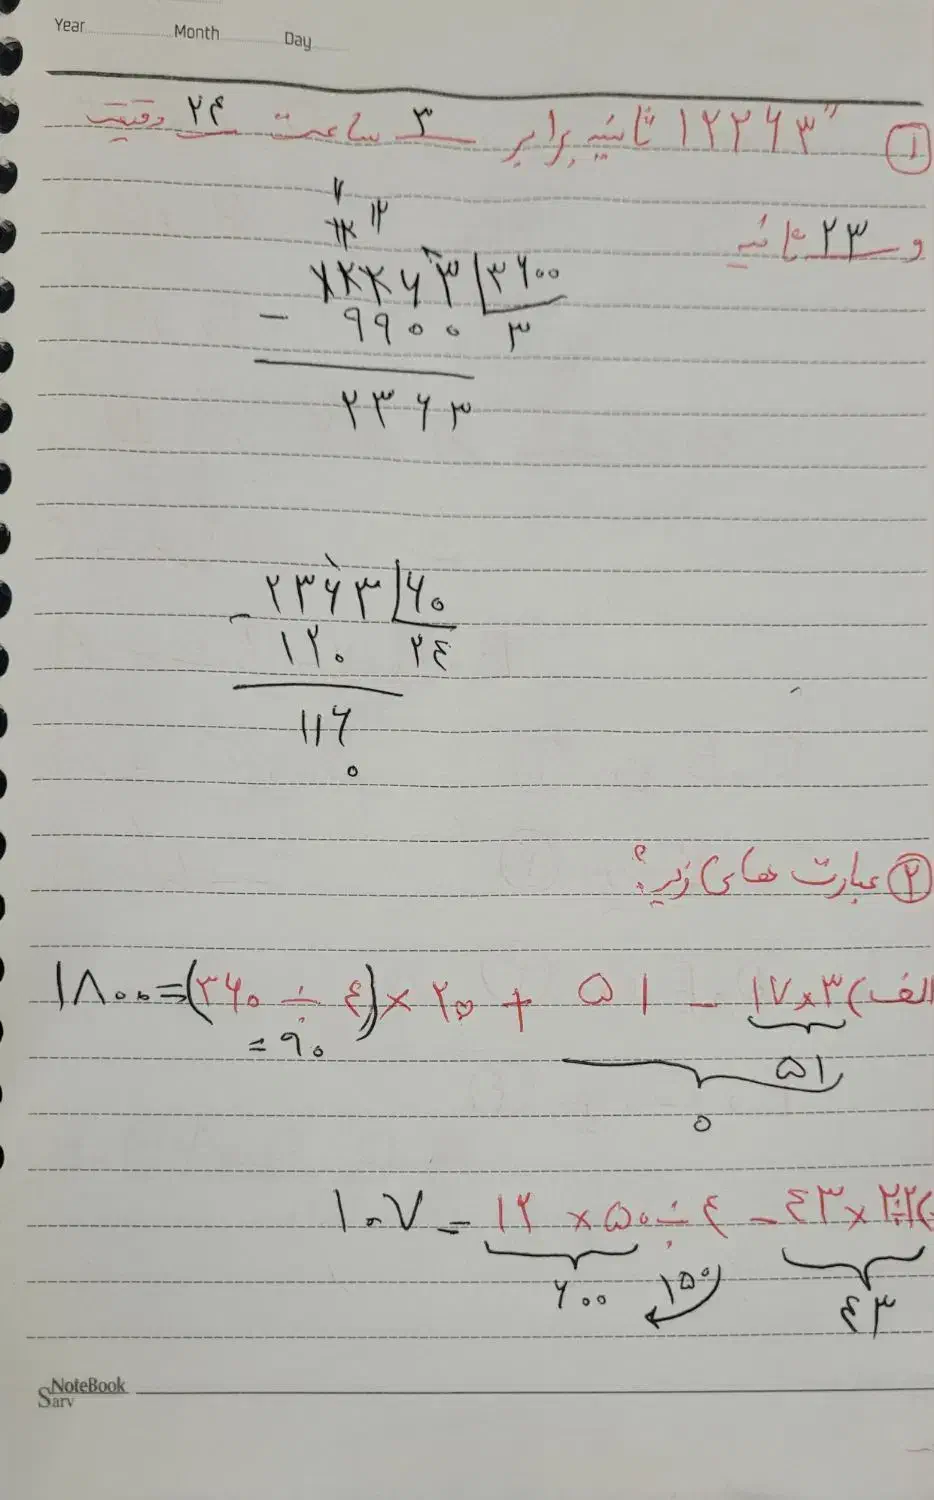 Year Month Day
۱ ۱۲۲۶۳" ثانیه برابر ۳ ساعت ۲۴ دقیقه
و ۲۳ ثانیه
۷
۱۲ ۱۲
۱۲۲۶۳ ۳۶۰۰
- ۹۹۰۰ ۳
۲۳۶۳
۲۳۶۳ ۶۰
- ۱۲۰ ۲٤
۱۱۶
۰
۲ عبارت های زیر؟
۱۸۰۰=(۳۶۰ ÷ ٤) × ۲۰ + ۵۱ - ۱۷×۳ (الف
= ۹۰
۵۱
۰
۱۰۷ = ۱۲ × ۵۰ ÷ ٤ - ٤۳ ×
۶۰۰ ۱۵۰ ٤۳
NoteBook
Sarv